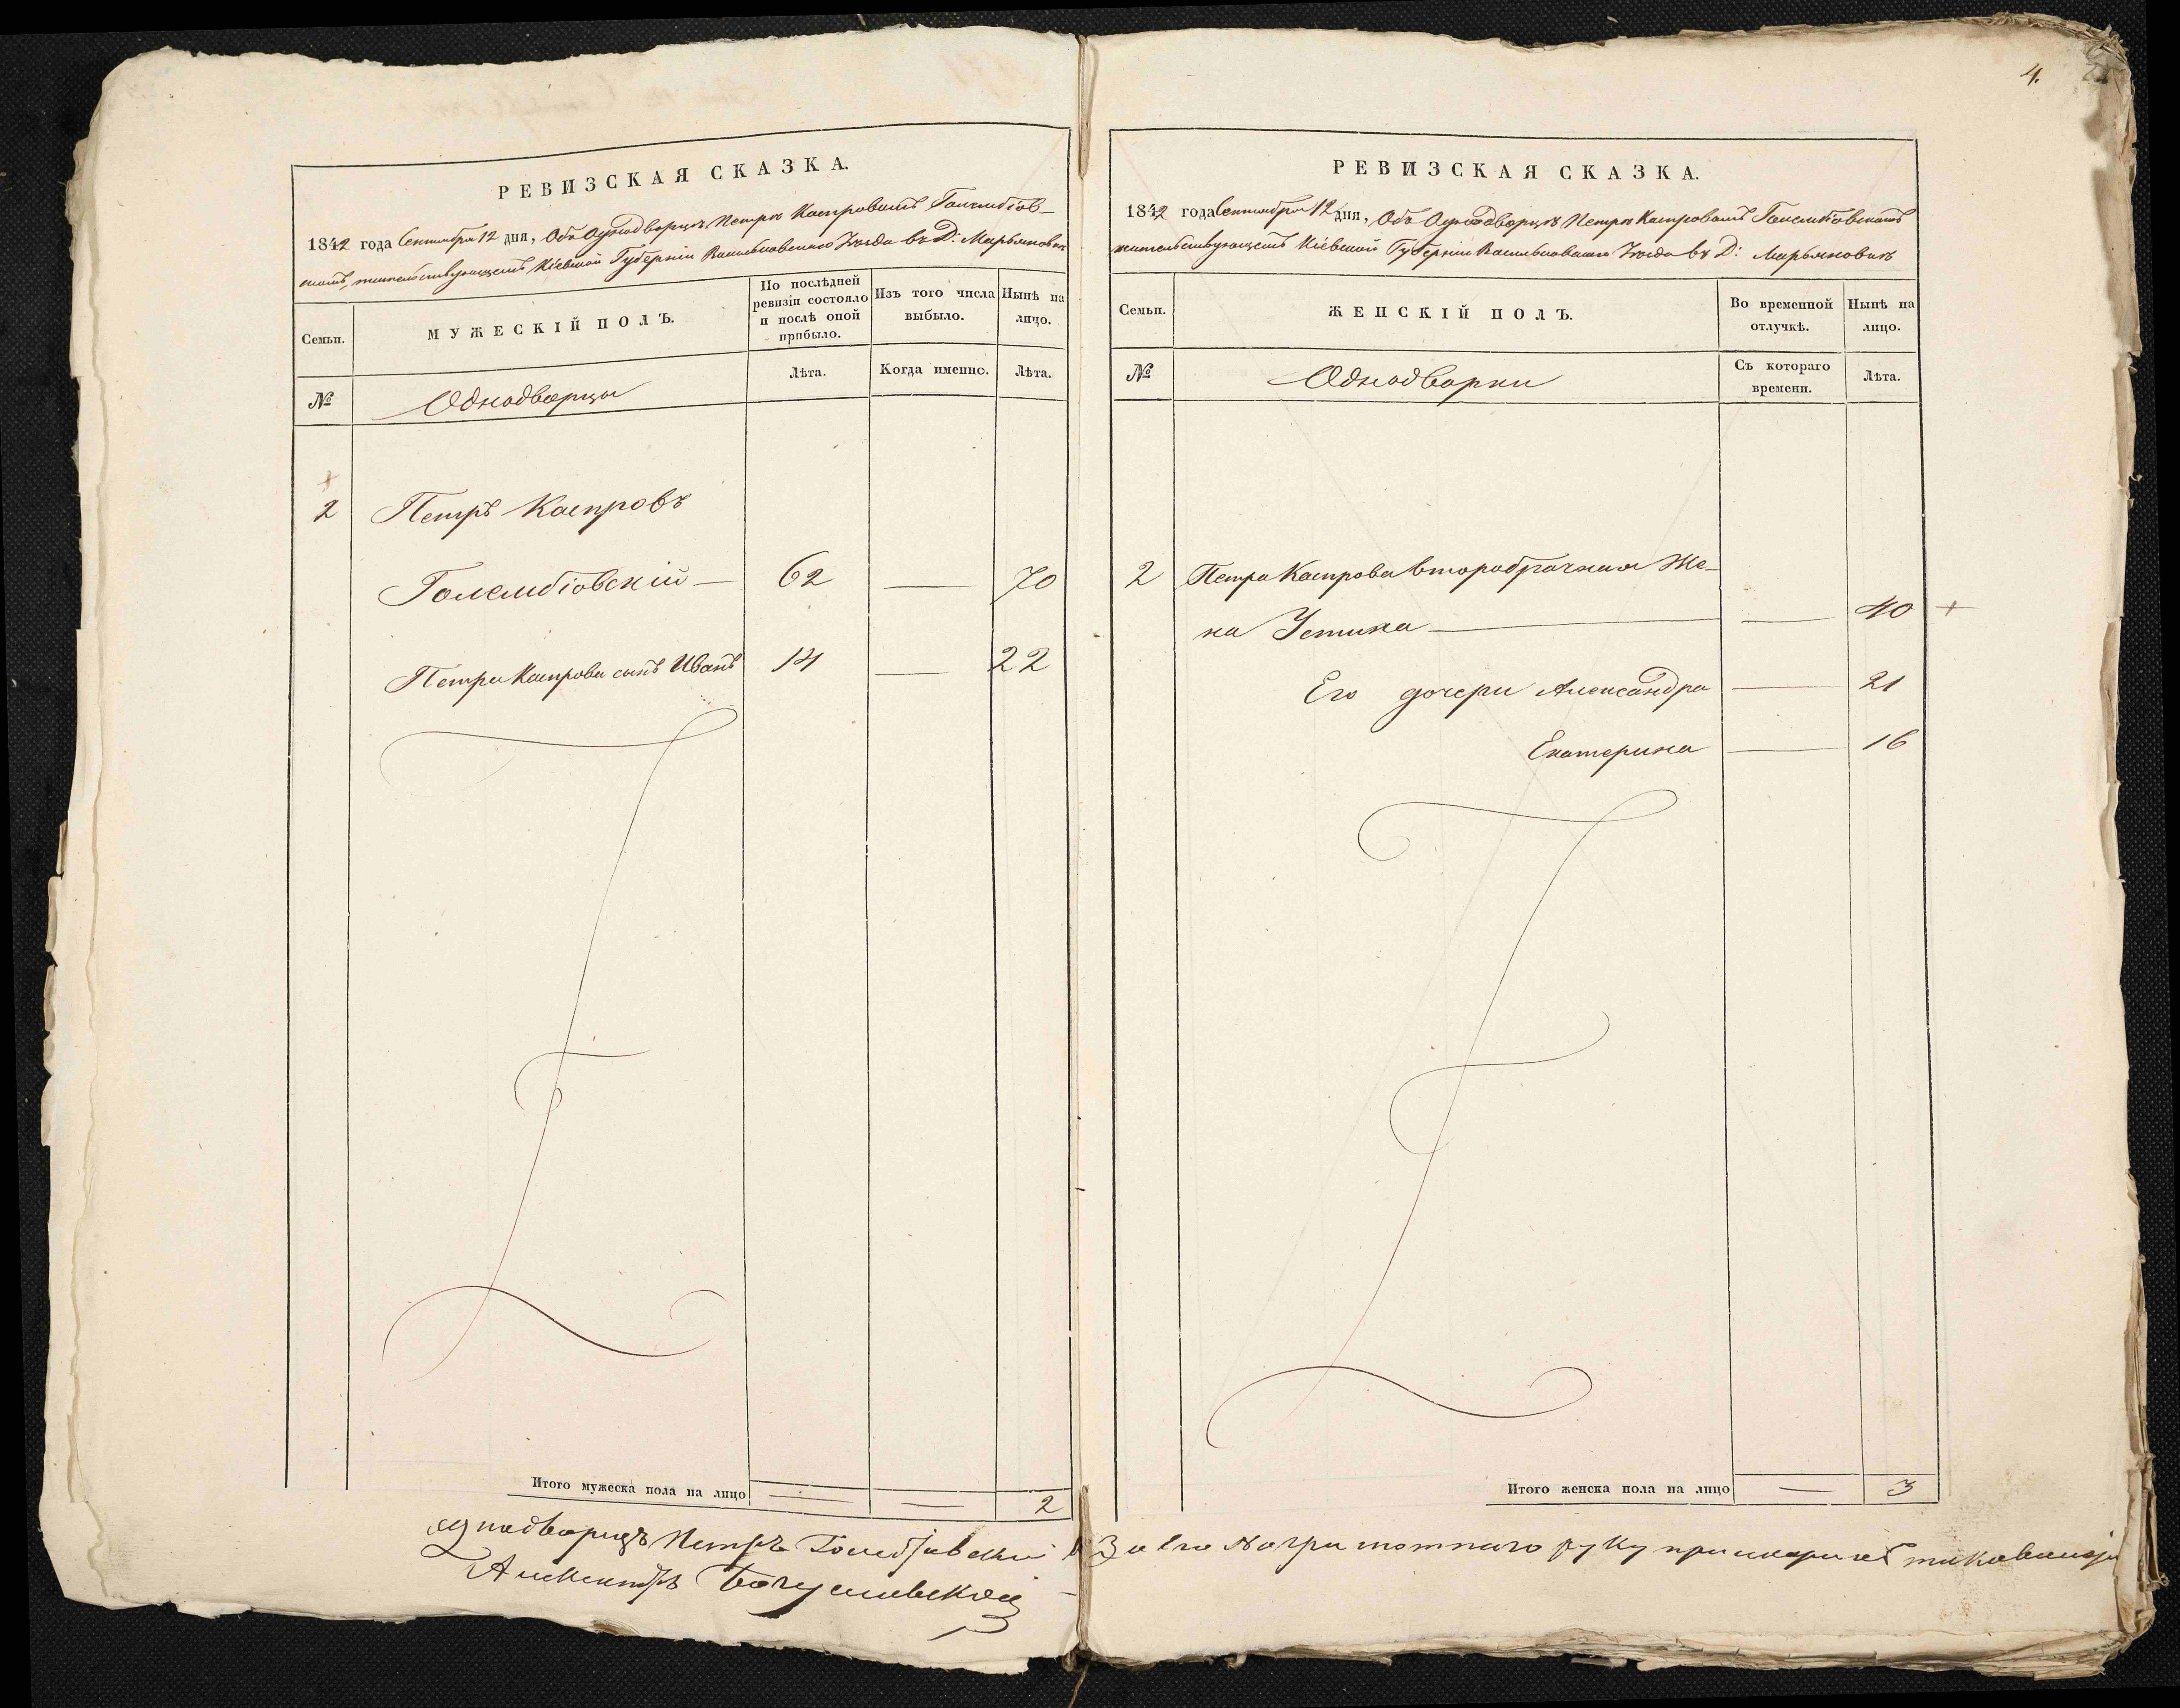 4.
РЕВИЗСКАЯ СКАЗКА.
1842 года Сентября 12 дня, Объ Однодворцѣ Петрѣ Каспровомъ Голембіов-
скомъ, жительствующемъ Кіевской Губерніи Васильковскаго Уѣзда въ Д: Марьяновкѣ
Семьи.
МУЖЕСКІЙ ПОЛЪ.
По послѣдней ревизіи состояло и послѣ оной прибыло.
Изъ того числа выбыло.
Нынѣ на лицо.
№
Однодворцы
Лѣта.
Когда именно.
Лѣта.
2 Петръ Каспровъ
Голембіовскій — 62 — 70
Петра Каспрова сынъ Иванъ 14 — 22
Итого мужеска пола на лицо — — 2
однодворецъ Петръ Голембіовскій
Александръ Богуславский
РЕВИЗСКАЯ СКАЗКА.
1842 года Сентября 12 дня, Объ Однодворцѣ Петрѣ Каспровомъ Голембіовскомъ
жительствующемъ Кіевской Губерніи Васильковскаго Уѣзда въ Д: Марьяновкѣ
Семьи.
ЖЕНСКІЙ ПОЛЪ.
Во временной отлучкѣ.
Нынѣ на лицо.
№
Однодворки
Съ котораго времени.
Лѣта.
2 Петра Каспрова второбрачная Же-
на Устина — — 40 +
Его дочери Александра — 21
Екатерина — 16
Итого женска пола на лицо — 3
За его неграмотнаго руку приложилъ